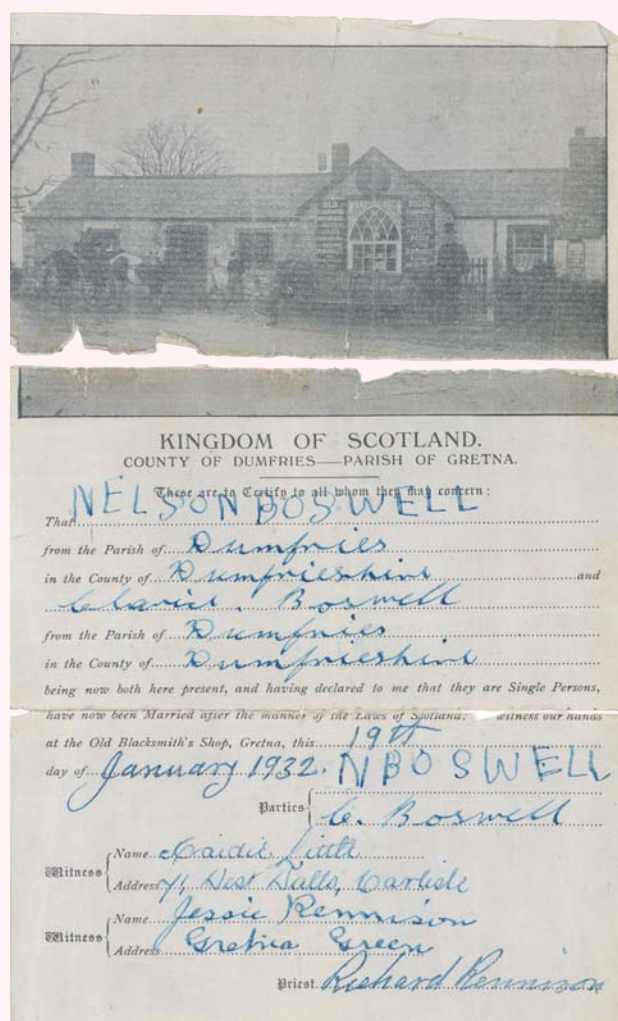 KINGDOM OF SCOTLAND.
COUNTY OF DUMFRIES—PARISH OF GRETNA.
These are to Certify to all whom they may concern:
That NELSON BOSWELL
from the Parish of Dumfries
in the County of Dumfrieshire and
Clarice. Boswell
from the Parish of Dumfries
in the County of Dumfrieshire
being now both here present, and having declared to me that they are Single Persons,
have now been Married after the manner of the Laws of Scotland: witness our hands
at the Old Blacksmith's Shop, Gretna, this 19th
day of January 1932. N BOSWELL
Parties C. Boswell
Witness
Name Little
Address 71, West Walls, Carlisle
Witness
Name Jessie Rennison
Address Gretna Green
Priest Richard Rennison